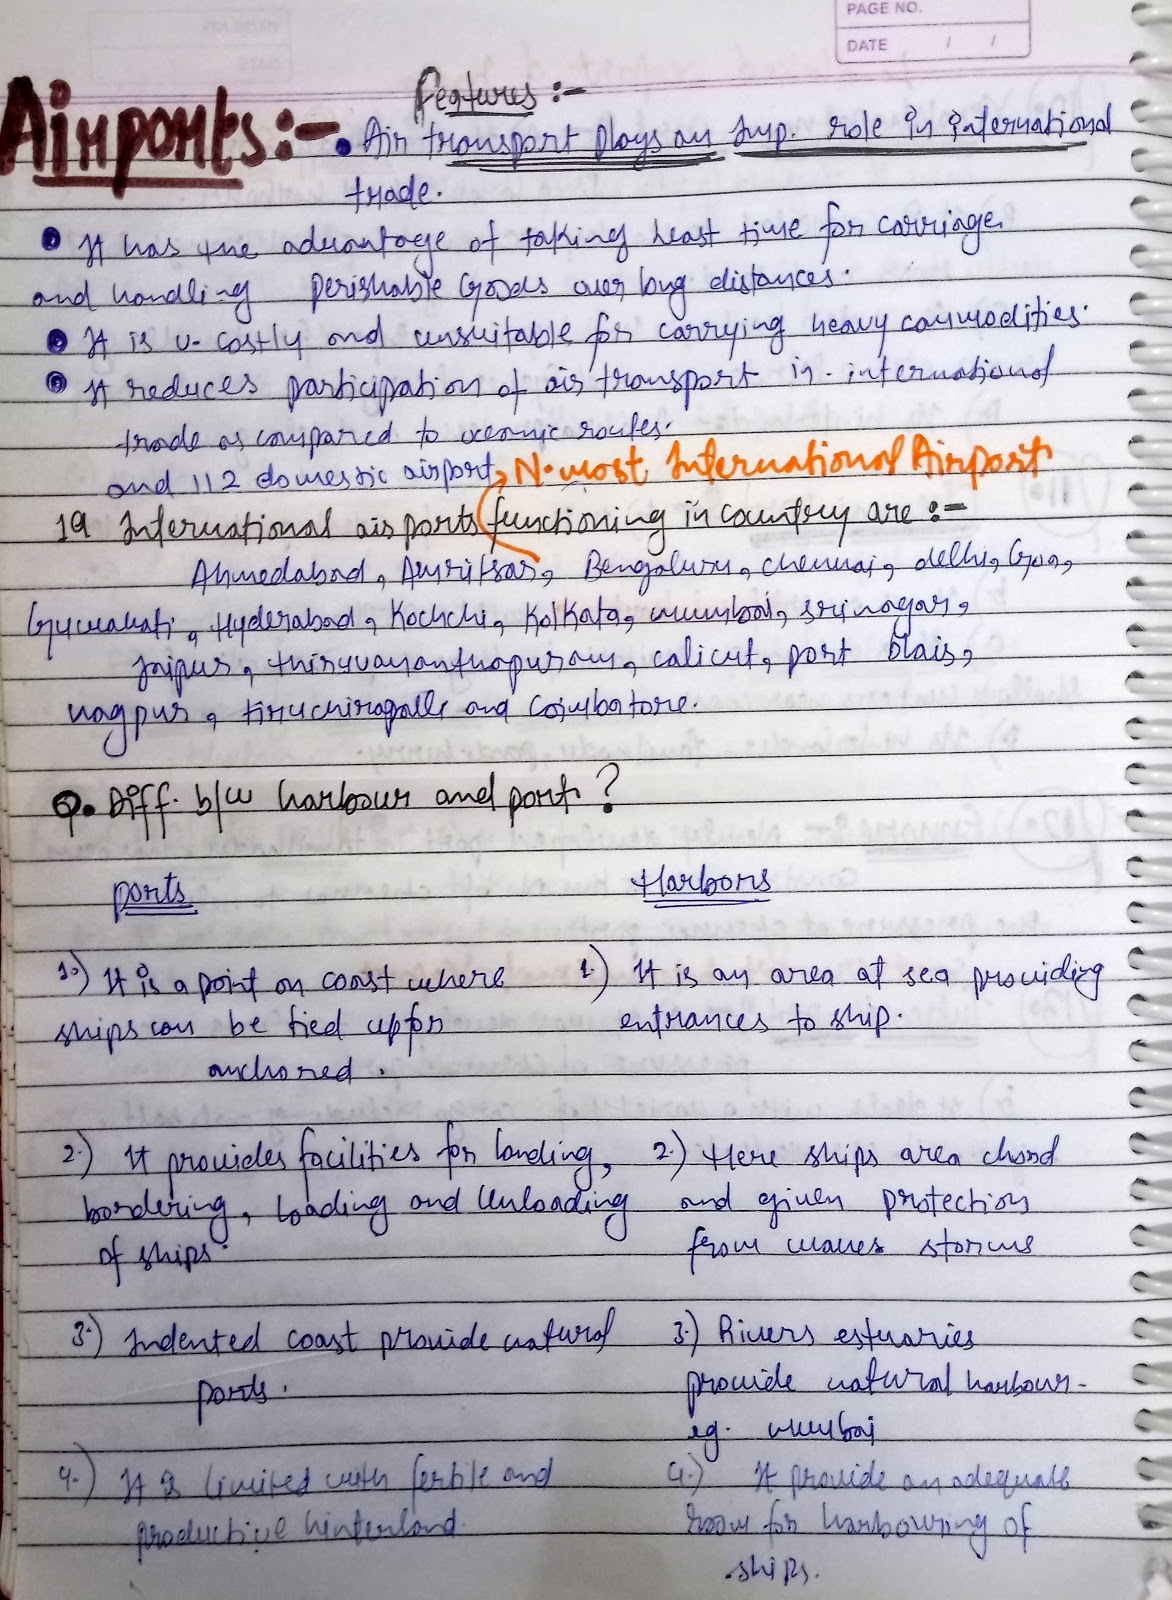 PAGE NO.
DATE / /
Features :-
Airports:- • Air transport plays an Imp. role in international
trade.
• It has the advantage of taking least time for carriage
and handling perishable Goods over long distances.
• It is v. costly and unsuitable for carrying heavy commodities.
• It reduces participation of air transport in international
trade as compared to oceanic routes.
and 112 domestic airport, N. most International Airport
19 International airports functioning in country are :-
Ahmedabad, Amritsar, Bengaluru, chennai, delhi, Goa,
Guwahati, Hyderabad, Kochchi, Kolkata, mumbai, srinagar,
jaipur, thiruvananthapuram, calicut, port blair,
nagpur, tiruchirapalli and Coimbatore.
Q. Diff. b/w harbour and port ?
Ports Harbors
1.) It is a point on coast where 1.) It is an area at sea providing
ships can be tied up for entrances to ship.
anchored.
2.) It provides facilities for landing, 2.) Here ships area chord
bordering, loading and Unloading and given protection
of ships. from waves storms
3.) Indented coast provide natural 3.) Rivers estuaries
ports. provide natural harbour.
eg. mumbai
4.) It is limited with fertile and 4.) It provide an adequate
productive hinterland. room for harbouring of
ships.